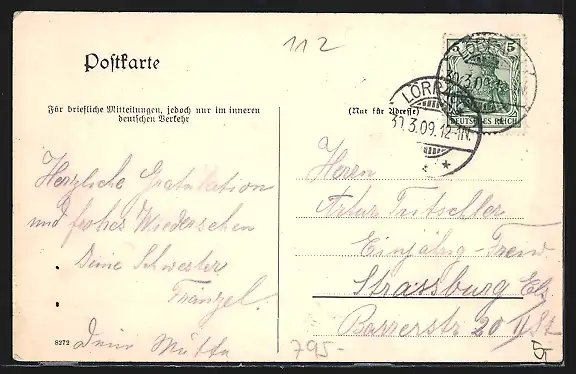 112
Postkarte
Für briefliche Mitteilungen, jedoch nur im inneren
deutschen Verkehr
(Nur für Adresse)
5 5
DEUTSCHES REICH
LÖRR
30.3.09.12-1N.
Herzliche Gratulation
und frohes Wiedersehen
Deine Schwester
Fränzel.
Dein Mutta
8272
Herrn
Artur Tritschler
Einjährig-Freiw.
Strassburg Els
Barrerstr 20 II St
795-
5